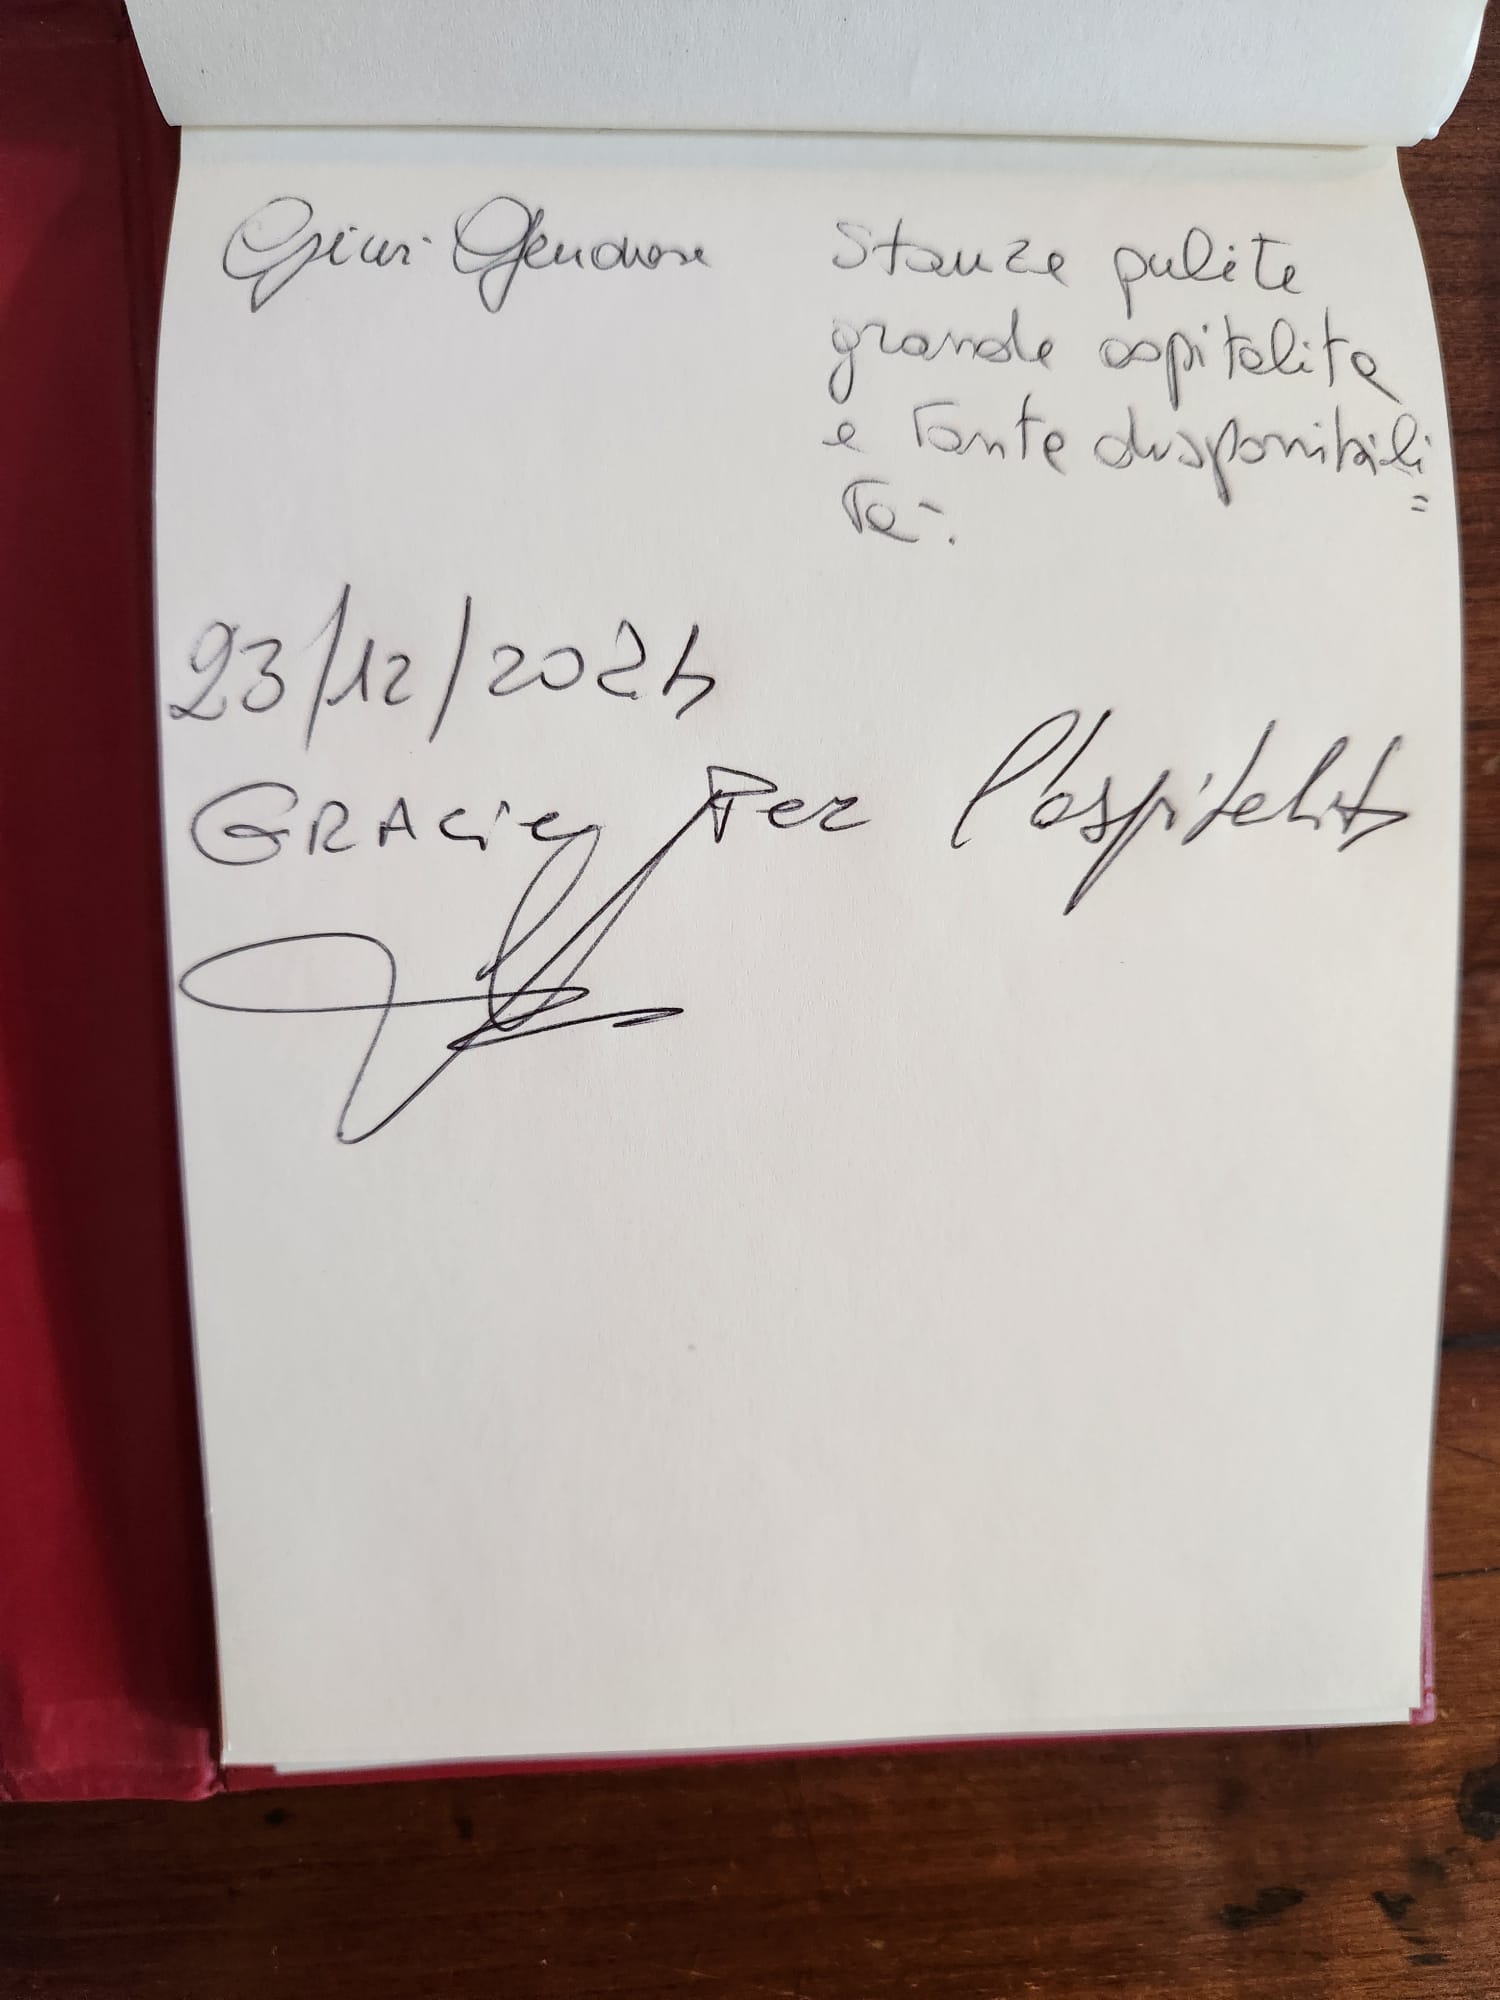 Stanze pulite
grande ospitalita
e tante disponibili=
tà.
23/12/2024
GRACIE Per l'ospitalità